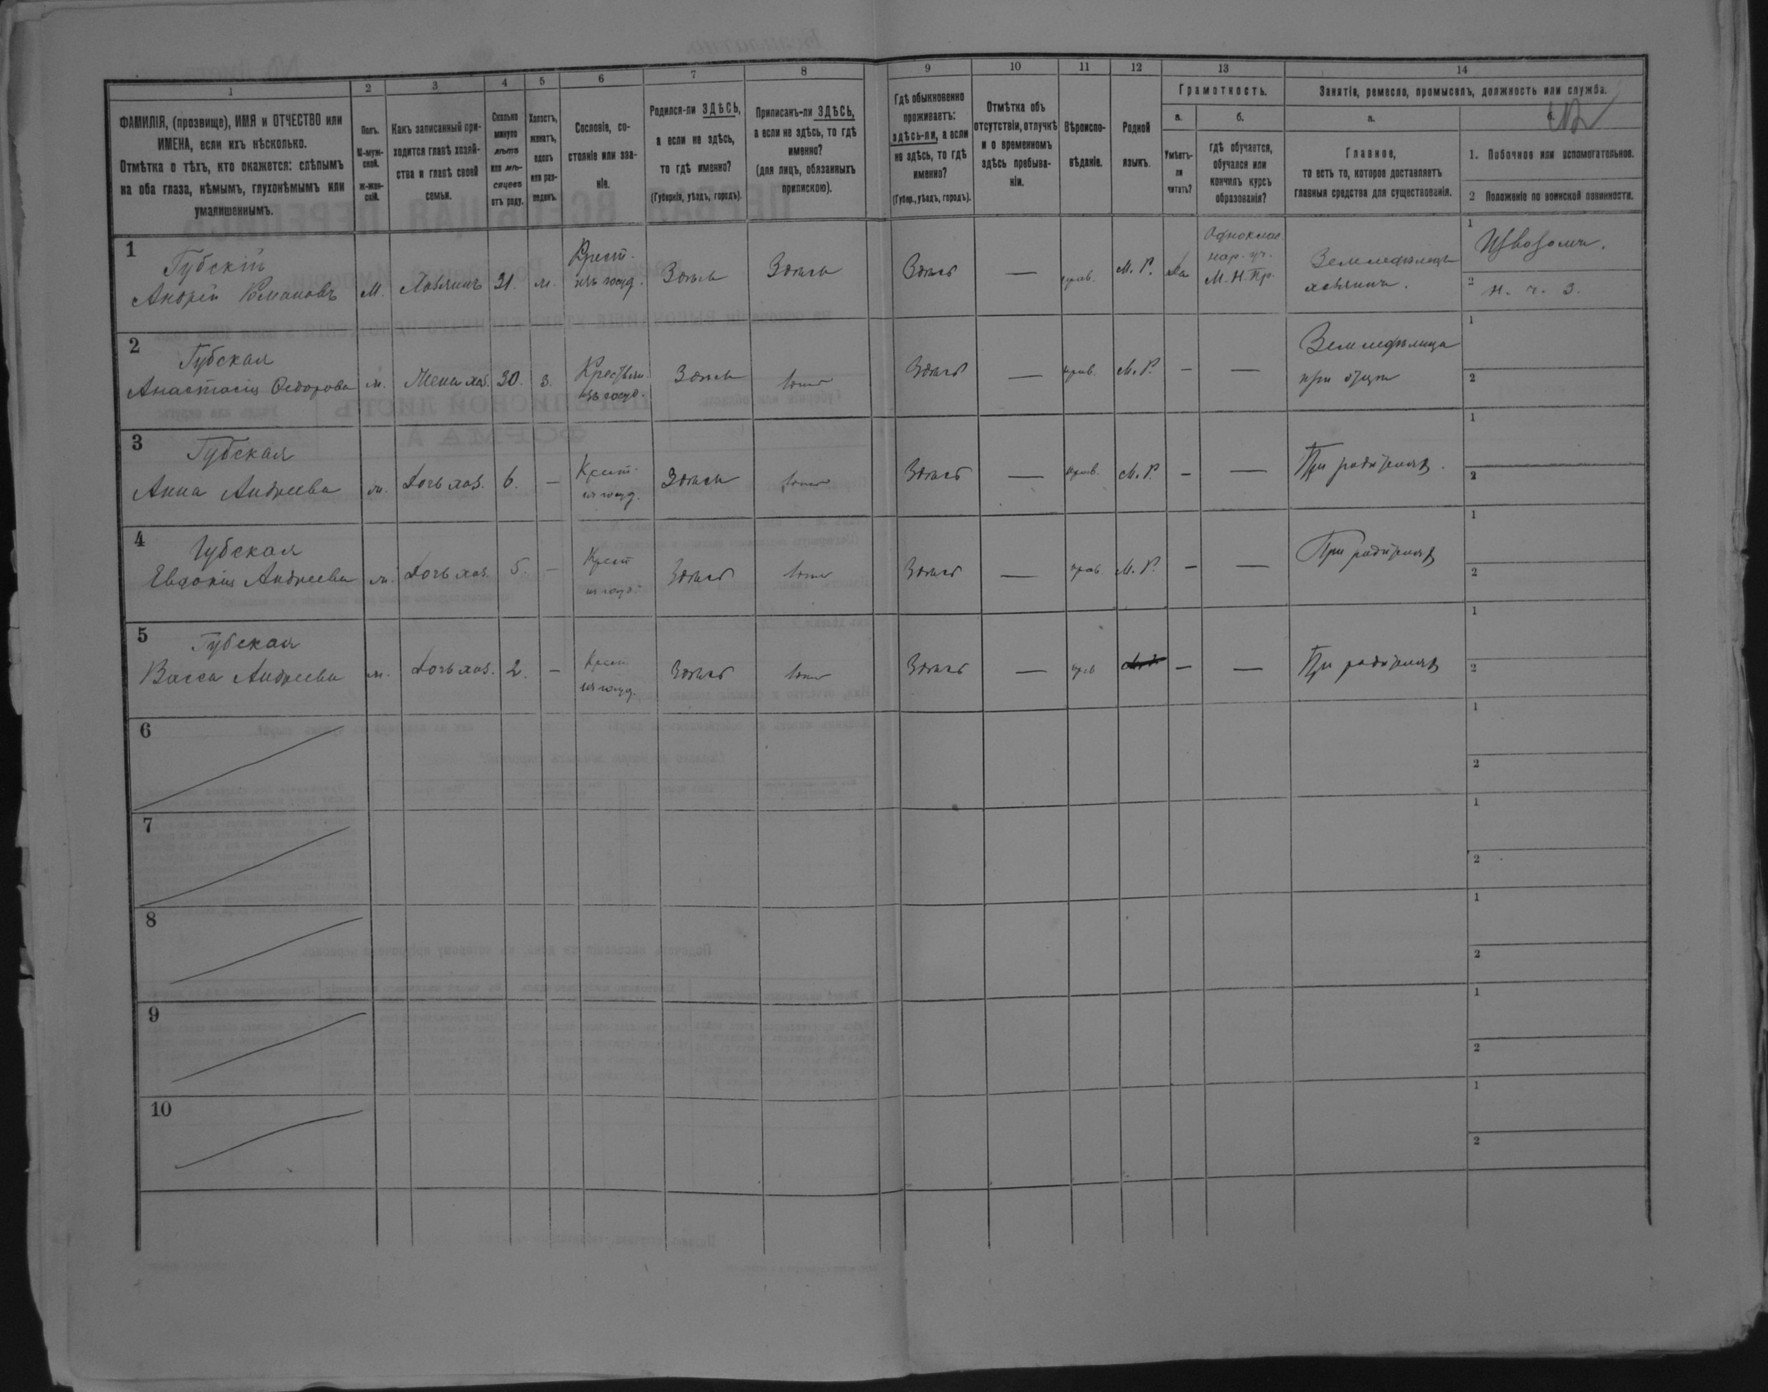 1
2
3
4
5
6
7
8
9
10
11
12
13
14
ФАМИЛІЯ, (прозвище), ИМЯ и ОТЧЕСТВО или
ИМЕНА, если ихъ нѣсколько.
Отмѣтка о тѣхъ, кто окажется: слѣпымъ
на оба глаза, нѣмымъ, глухонѣмымъ или
умалишеннымъ.
Полъ.
М-муж-
ской.
Ж-жен-
скій.
Какъ записанный при-
ходится главѣ хозяй-
ства и главѣ своей
семьи.
Сколько
минуло
лѣтъ
или мѣ-
сяцевъ
отъ роду.
Холостъ,
женатъ,
вдовъ
или раз-
веденъ.
Сословіе, со-
стояніе или зва-
ніе.
Родился-ли ЗДѢСЬ,
а если не здѣсь,
то гдѣ именно?
(Губернія, уѣздъ, городъ).
Приписанъ-ли ЗДѢСЬ,
а если не здѣсь, то гдѣ
именно?
(для лицъ, обязанныхъ
припискою).
Гдѣ обыкновенно
проживаетъ:
здѣсь-ли, а если
не здѣсь, то гдѣ
именно?
(Губер., уѣздъ, городъ).
Отмѣтка объ
отсутствіи, отлучкѣ
и о временномъ
здѣсь пребыва-
ніи.
Вѣроиспо-
вѣданіе.
Родной
языкъ.
Грамотность.
а.
Умѣетъ-
ли
читать?
б.
гдѣ обучается,
обучался или
кончилъ курсъ
образованія?
Занятія, ремесло, промыселъ, должность или служба.
а.
Главное,
то есть то, которое доставляетъ
главныя средства для существованія.
1. Побочное или вспомогательное.
2 Положеніе по воинской повинности.
1
Губскій
Андрей Романовъ
м.
Хозяинъ
31.
м.
Крест.
изъ госуд.
Здѣсь
Здѣсь
Здѣсь
—
прав.
М. Р.
Да
Однокла
нар. уч.
М. Н. Пр.
Земледѣлецъ
хозяинъ.
1
Извозомъ.
2
н. ч. з.
2
Губская
Анастасія Ѳедорова
ж.
Жена хоз.
30.
з.
Крестьян.
изъ госуд.
Здѣсь
тоже
Здѣсь
—
прав.
М. Р.
—
—
Земледѣлица
при мужѣ
1
2
3
Губская
Анна Андреева
ж.
Дочь хоз.
6.
—
Крест.
из госуд.
Здѣсь
тоже
Здѣсь
—
прав.
М. Р.
—
—
При родителяхъ.
1
2
4
Губская
Евдокія Андреева
ж.
Дочь хоз.
5.
—
Крест
из госуд.
Здѣсь
тоже
Здѣсь
—
прав
М. Р.
—
—
При родителяхъ
1
2
5
Губская
Васса Андреева
ж.
Дочь хоз.
2.
—
Крест
из госуд.
Здѣсь
тоже
Здѣсь
—
прав
—
—
При родителяхъ
1
2
6
1
2
7
1
2
8
1
2
9
1
2
10
1
2